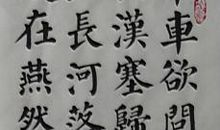 車欲問
漢塞歸
長河落
在燕然